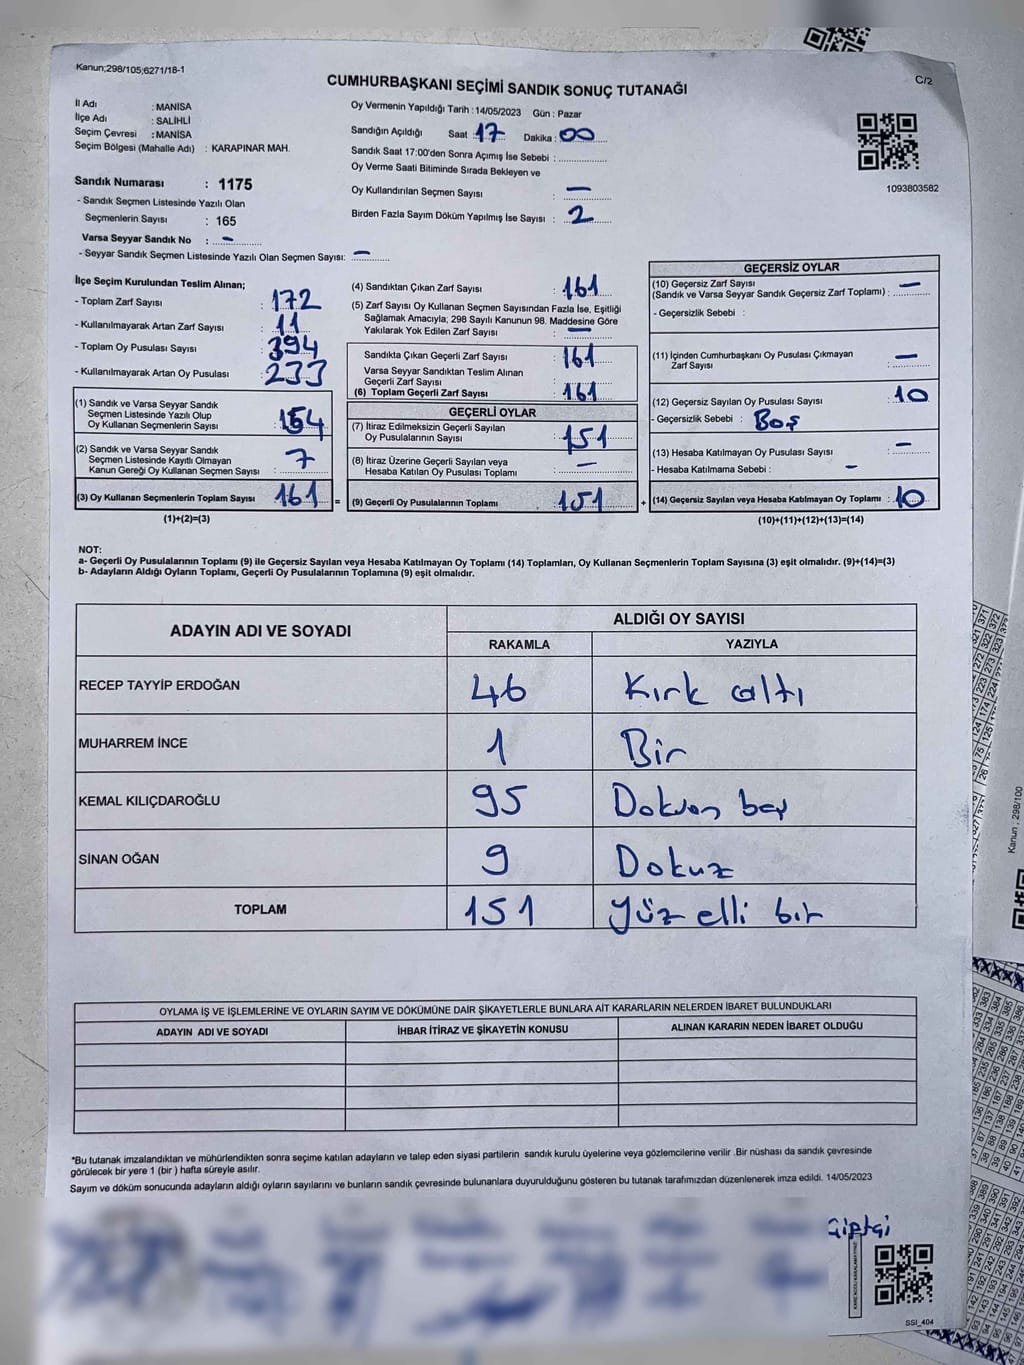 Kanun;298/105;6271/18-1
C/2
CUMHURBAŞKANI SEÇİMİ SANDIK SONUÇ TUTANAĞI
İl Adı : MANİSA
İlçe Adı : SALİHLİ
Seçim Çevresi : MANİSA
Seçim Bölgesi (Mahalle Adı) : KARAPINAR MAH.
Sandık Numarası : 1175
- Sandık Seçmen Listesinde Yazılı Olan
Seçmenlerin Sayısı : 165
Varsa Seyyar Sandık No : -
- Seyyar Sandık Seçmen Listesinde Yazılı Olan Seçmen Sayısı: -
Oy Vermenin Yapıldığı Tarih : 14/05/2023 Gün : Pazar
Sandığın Açıldığı Saat : 17 Dakika : 00
Sandık Saat 17:00'den Sonra Açımış İse Sebebi :
Oy Verme Saati Bitiminde Sırada Bekleyen ve
Oy Kullandırılan Seçmen Sayısı : -
Birden Fazla Sayım Döküm Yapılmış İse Sayısı : 2
1093803582
İlçe Seçim Kurulundan Teslim Alınan;
- Toplam Zarf Sayısı : 172
- Kullanılmayarak Artan Zarf Sayısı : 11
- Toplam Oy Pusulası Sayısı : 394
- Kullanılmayarak Artan Oy Pusulası : 233
(1) Sandık ve Varsa Seyyar Sandık
Seçmen Listesinde Yazılı Olup
Oy Kullanan Seçmenlerin Sayısı : 154
(2) Sandık ve Varsa Seyyar Sandık
Seçmen Listesinde Kayıtlı Olmayan
Kanun Gereği Oy Kullanan Seçmen Sayısı : 7
(3) Oy Kullanan Seçmenlerin Toplam Sayısı : 161 =
(1)+(2)=(3)
(4) Sandıktan Çıkan Zarf Sayısı : 161
(5) Zarf Sayısı Oy Kullanan Seçmen Sayısından Fazla İse, Eşitliği
Sağlamak Amacıyla; 298 Sayılı Kanunun 98. Maddesine Göre
Yakılarak Yok Edilen Zarf Sayısı : -
Sandıkta Çıkan Geçerli Zarf Sayısı : 161
Varsa Seyyar Sandıktan Teslim Alınan
Geçerli Zarf Sayısı :
(6) Toplam Geçerli Zarf Sayısı : 161
GEÇERLİ OYLAR
(7) İtiraz Edilmeksizin Geçerli Sayılan
Oy Pusulalarının Sayısı : 151
(8) İtiraz Üzerine Geçerli Sayılan veya
Hesaba Katılan Oy Pusulası Toplamı : -
(9) Geçerli Oy Pusulalarının Toplamı : 151 +
GEÇERSİZ OYLAR
(10) Geçersiz Zarf Sayısı
(Sandık ve Varsa Seyyar Sandık Geçersiz Zarf Toplamı) : -
- Geçersizlik Sebebi :
(11) İçinden Cumhurbaşkanı Oy Pusulası Çıkmayan
Zarf Sayısı : -
(12) Geçersiz Sayılan Oy Pusulası Sayısı : 10
- Geçersizlik Sebebi : Boş
(13) Hesaba Katılmayan Oy Pusulası Sayısı : -
- Hesaba Katılmama Sebebi : -
(14) Geçersiz Sayılan veya Hesaba Katılmayan Oy Toplamı : 10
(10)+(11)+(12)+(13)=(14)
NOT:
a- Geçerli Oy Pusulalarının Toplamı (9) ile Geçersiz Sayılan veya Hesaba Katılmayan Oy Toplamı (14) Toplamları, Oy Kullanan Seçmenlerin Toplam Sayısına (3) eşit olmalıdır. (9)+(14)=(3)
b- Adayların Aldığı Oyların Toplamı, Geçerli Oy Pusulalarının Toplamına (9) eşit olmalıdır.
ADAYIN ADI VE SOYADI
ALDIĞI OY SAYISI
RAKAMLA YAZIYLA
RECEP TAYYİP ERDOĞAN 46 Kırk altı
MUHARREM İNCE 1 Bir
KEMAL KILIÇDAROĞLU 95 Doksan beş
SİNAN OĞAN 9 Dokuz
TOPLAM 151 Yüz elli bir
OYLAMA İŞ VE İŞLEMLERİNE VE OYLARIN SAYIM VE DÖKÜMÜNE DAİR ŞİKAYETLERLE BUNLARA AİT KARARLARIN NELERDEN İBARET BULUNDUKLARI
ADAYIN ADI VE SOYADI İHBAR İTİRAZ VE ŞİKAYETİN KONUSU ALINAN KARARIN NEDEN İBARET OLDUĞU
*Bu tutanak imzalandıktan ve mühürlendikten sonra seçime katılan adayların ve talep eden siyasi partilerin sandık kurulu üyelerine veya gözlemcilerine verilir .Bir nüshası da sandık çevresinde
görülecek bir yere 1 (bir ) hafta süreyle asılır.
Sayım ve döküm sonucunda adayların aldığı oyların sayılarını ve bunların sandık çevresinde bulunanlara duyurulduğunu gösteren bu tutanak tarafımızdan düzenlenerek imza edildi. 14/05/2023
SSI_404
Kanun : 298/100